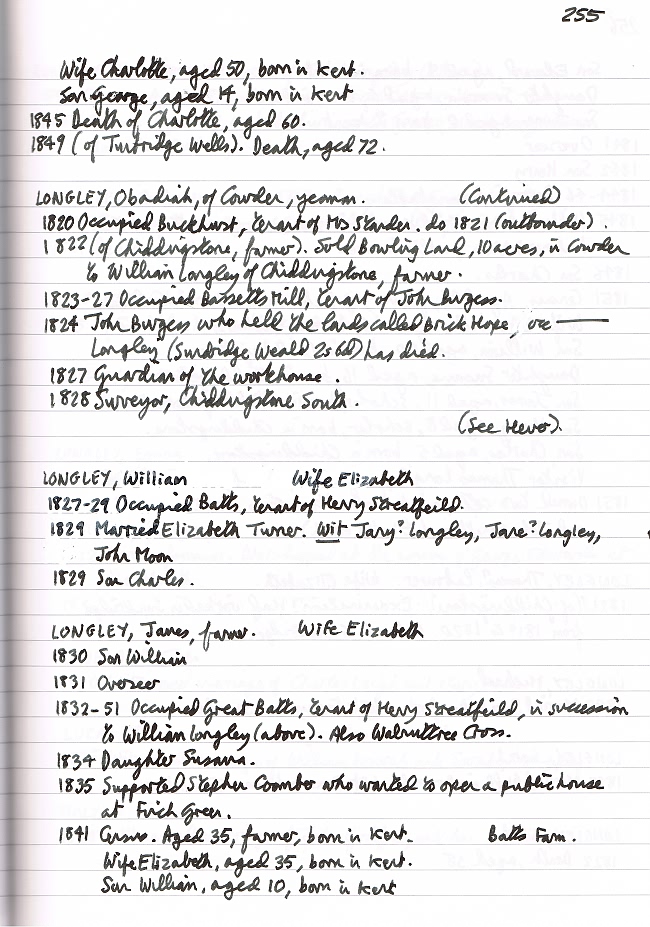 255
Wife Charlotte, aged 50, born in Kent.
Son George, aged 14, born in Kent
1845 Death of Charlotte, aged 60.
1849 (of Tunbridge Wells). Death, aged 72.
LONGLEY, Obadiah, of Cowden, yeoman. (Continued)
1820 Occupied Buckhurst, tenant of Mrs Standen. do 1821 (outbounder).
1822 (of Chiddingstone, farmer). Sold Bowling Land, 10 acres, in Cowden
to William Longley of Chiddingstone, farmer.
1823-27 Occupied Bassetts Mill, tenant of John Burgess.
1824 John Burgess who held the lands called Brick Hope, vac ———
Longley (Sundridge Weald 2s 6d) has died.
1827 Guardian of the workhouse.
1828 Surveyor, Chiddingstone South.
(See Hever).
LONGLEY, William Wife Elizabeth
1827-29 Occupied Batts, tenant of Henry Streatfeild.
1829 Married Elizabeth Turner. Wit Jany? Longley, Jane? Longley,
John Moon
1829 Son Charles.
LONGLEY, James, farmer. Wife Elizabeth
1830 Son William
1831 Overseer
1832-51 Occupied Great Batts, tenant of Henry Streatfeild, in succession
to William Longley (above). Also Walnuttree Cross.
1834 Daughter Susanna.
1835 Supported Stephen Coomber who wanted to open a public house
at Finch Green.
1841 Census. Aged 35, farmer, born in Kent. Batts Farm.
Wife Elizabeth, aged 35, born in Kent.
Son William, aged 10, born in Kent